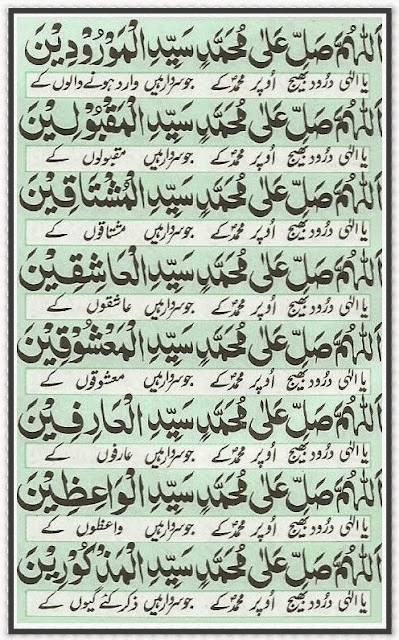 اَللّٰهُمَّ صَلِّ عَلٰى مُحَمَّدٍ سَيِّدِ الْمَوْرُوْدِيْنَ
یا الٰہی درُود بھیج اُوپر محمدؐ کے جو سردار ہیں وارد ہونے والوں کے
اَللّٰهُمَّ صَلِّ عَلٰى مُحَمَّدٍ سَيِّدِ الْمَقْبُوْلِيْنَ
یا الٰہی درُود بھیج اُوپر محمدؐ کے جو سردار ہیں مقبولوں کے
اَللّٰهُمَّ صَلِّ عَلٰى مُحَمَّدٍ سَيِّدِ الْمُشْتَاقِيْنَ
یا الٰہی درُود بھیج اُوپر محمدؐ کے جو سردار ہیں مشتاقوں کے
اَللّٰهُمَّ صَلِّ عَلٰى مُحَمَّدٍ سَيِّدِ الْعَاشِقِيْنَ
یا الٰہی درُود بھیج اُوپر محمدؐ کے جو سردار ہیں عاشقوں کے
اَللّٰهُمَّ صَلِّ عَلٰى مُحَمَّدٍ سَيِّدِ الْمَعْشُوْقِيْنَ
یا الٰہی درُود بھیج اُوپر محمدؐ کے جو سردار ہیں معشوقوں کے
اَللّٰهُمَّ صَلِّ عَلٰى مُحَمَّدٍ سَيِّدِ الْعَارِفِيْنَ
یا الٰہی درُود بھیج اُوپر محمدؐ کے جو سردار ہیں عارفوں کے
اَللّٰهُمَّ صَلِّ عَلٰى مُحَمَّدٍ سَيِّدِ الْوَاعِظِيْنَ
یا الٰہی درُود بھیج اُوپر محمدؐ کے جو سردار ہیں واعظوں کے
اَللّٰهُمَّ صَلِّ عَلٰى مُحَمَّدٍ سَيِّدِ الْمَذْكُوْرِيْنَ
یا الٰہی درُود بھیج اُوپر محمدؐ کے جو سردار ہیں ذکر کئے گیوں کے